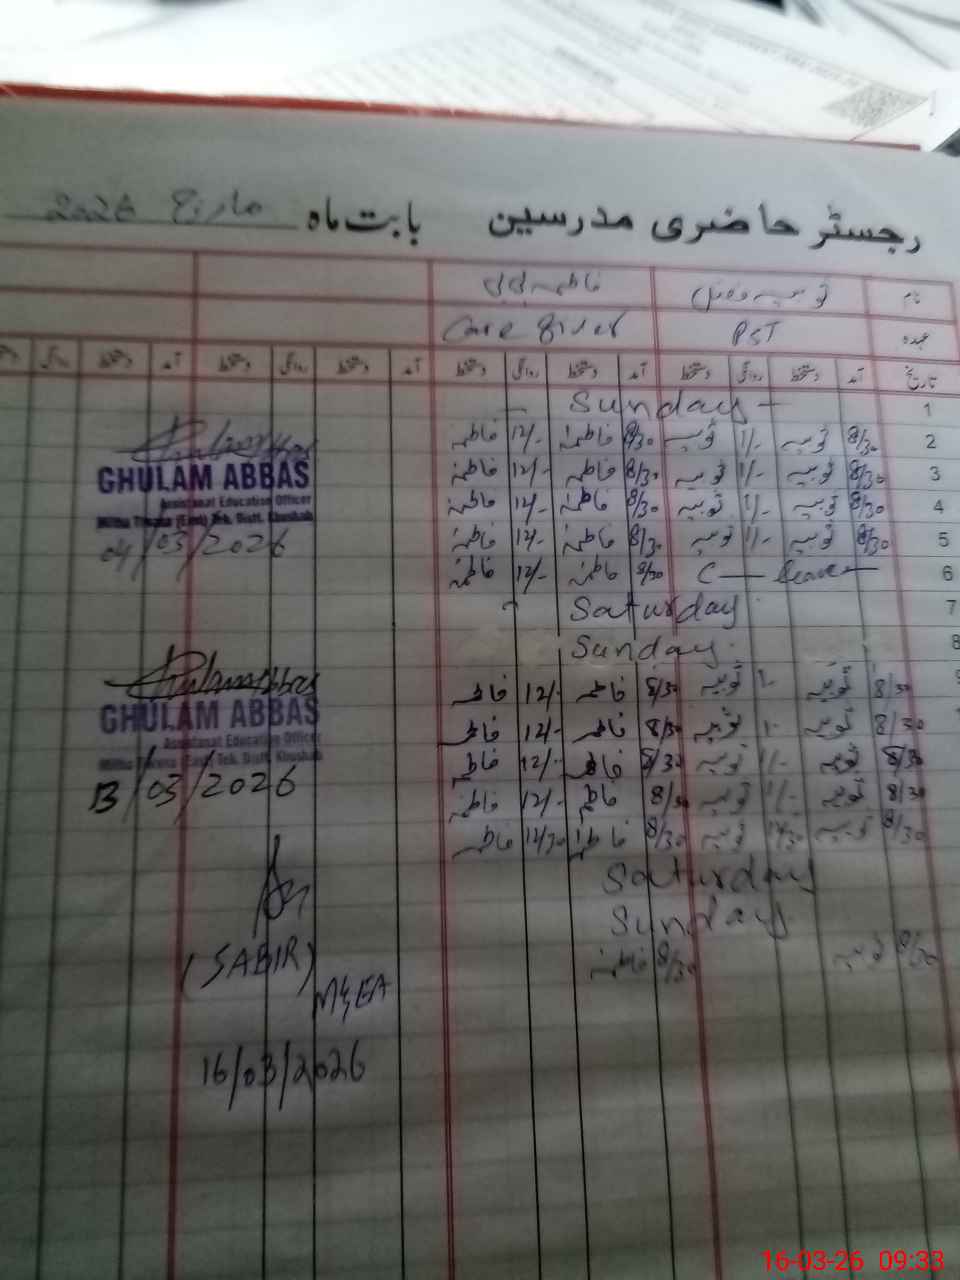 رجسٹر حاضری مدرسین بابت ماہ مارچ 2026
نام ثوبیہ فاطمہ بی بی
عہدہ PST Care Giver
تاریخ آمد دستخط روانگی دستخط آمد دستخط روانگی دستخط آمد دستخط روانگی دستخط آمد دستخط روانگی
1 Sunday
2 8/30 ثوبیہ 1/- ثوبیہ 8/30 فاطمہ 12/- فاطمہ
3 8/30 ثوبیہ 1/- ثوبیہ 8/30 فاطمہ 12/- فاطمہ
4 8/30 ثوبیہ 1/- ثوبیہ 8/30 فاطمہ 12/- فاطمہ
5 8/30 ثوبیہ 1/- ثوبیہ 8/30 فاطمہ 12/- فاطمہ
6 C — leave — 8/30 فاطمہ 12/- فاطمہ
7 Saturday
8 Sunday
8/30 ثوبیہ ثوبیہ 8/30 فاطمہ 12/- فاطمہ
8/30 ثوبیہ ثوبیہ 8/30 فاطمہ 12/- فاطمہ
8/30 ثوبیہ 1/- ثوبیہ 8/30 فاطمہ 12/- فاطمہ
8/30 ثوبیہ 1/- ثوبیہ 8/30 فاطمہ 12/- فاطمہ
8/30 ثوبیہ 12/30 ثوبیہ 8/30 فاطمہ 12/30 فاطمہ
Saturday
Sunday
8/30 ثوبیہ 8/30 فاطمہ
Ghulam Abbas
GHULAM ABBAS
Assistanat Education Officer
Mitha Tiwana (East) Teh. Distt. Khushab
04/03/2026
Ghulam Abbas
GHULAM ABBAS
Assistanat Education Officer
Mitha Tiwana (East) Teh. Distt. Khushab
13/03/2026
(SABIR)
M&EA
16/03/2026
16-03-26 09:33